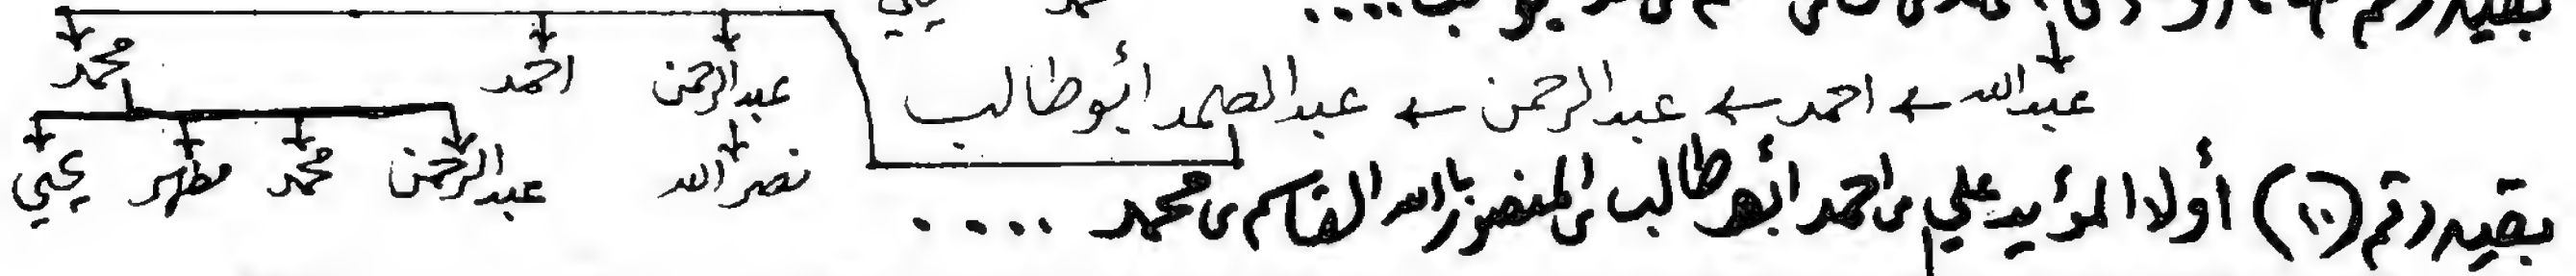 بقيه رقم
محمد احمد عبدالرحمن
عبدالله ← احمد ← عبدالرحمن ← عبدالصمد ابوطالب
يحيى مطهر محمد عبدالرحمن نصرالله
بقيه رقم (١٠) أولاد المؤيد علي بن احمد ابوطالب بن المنصور بالله القاسم بن محمد ....